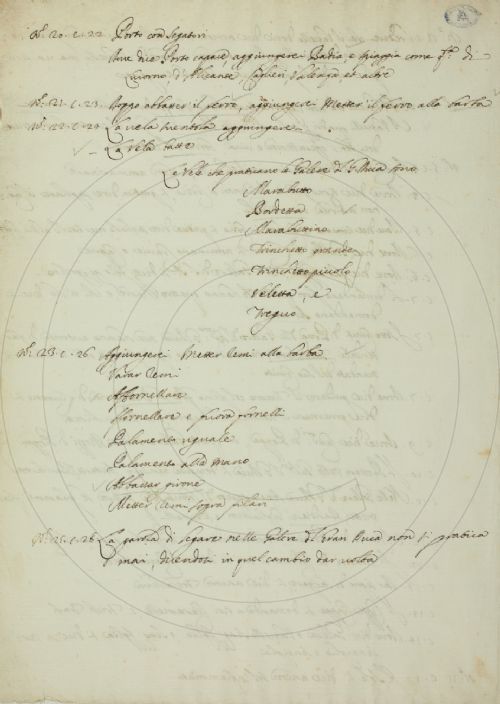 N.° 20. c. 22. Porto con Segatori
Ove dice Porto capace aggiungerei Badia, e spiaggia come di
Livorno d'Alicante, Caglieri, Valenza, et altre
N.° 21. c. 23. Doppo abbatter il ferro, aggiungere Metter il ferro alla barba
N.° 22. c. 24 La vela aggiungere
La Vela batte
Le Vele che praticano le Galere di sono
Marabutto
Bordetta
Marabuttino
Trinchetto grande
Trinchetto piccolo
Veletta, e
Treguo
N.° 23. c. 26. Aggiungerei Metter remi alla barba
Varar remi
Affornellare
Sfornellare e fuora fornelli
Palamento uguale
Palamento alla mano
Abbattar girone
Metter remi sopra pilari
N.° 25. c. 26. La parola di segare nelle Galere del Gran Duca non si pratica
mai, dicendosi in quel cambio dar volta